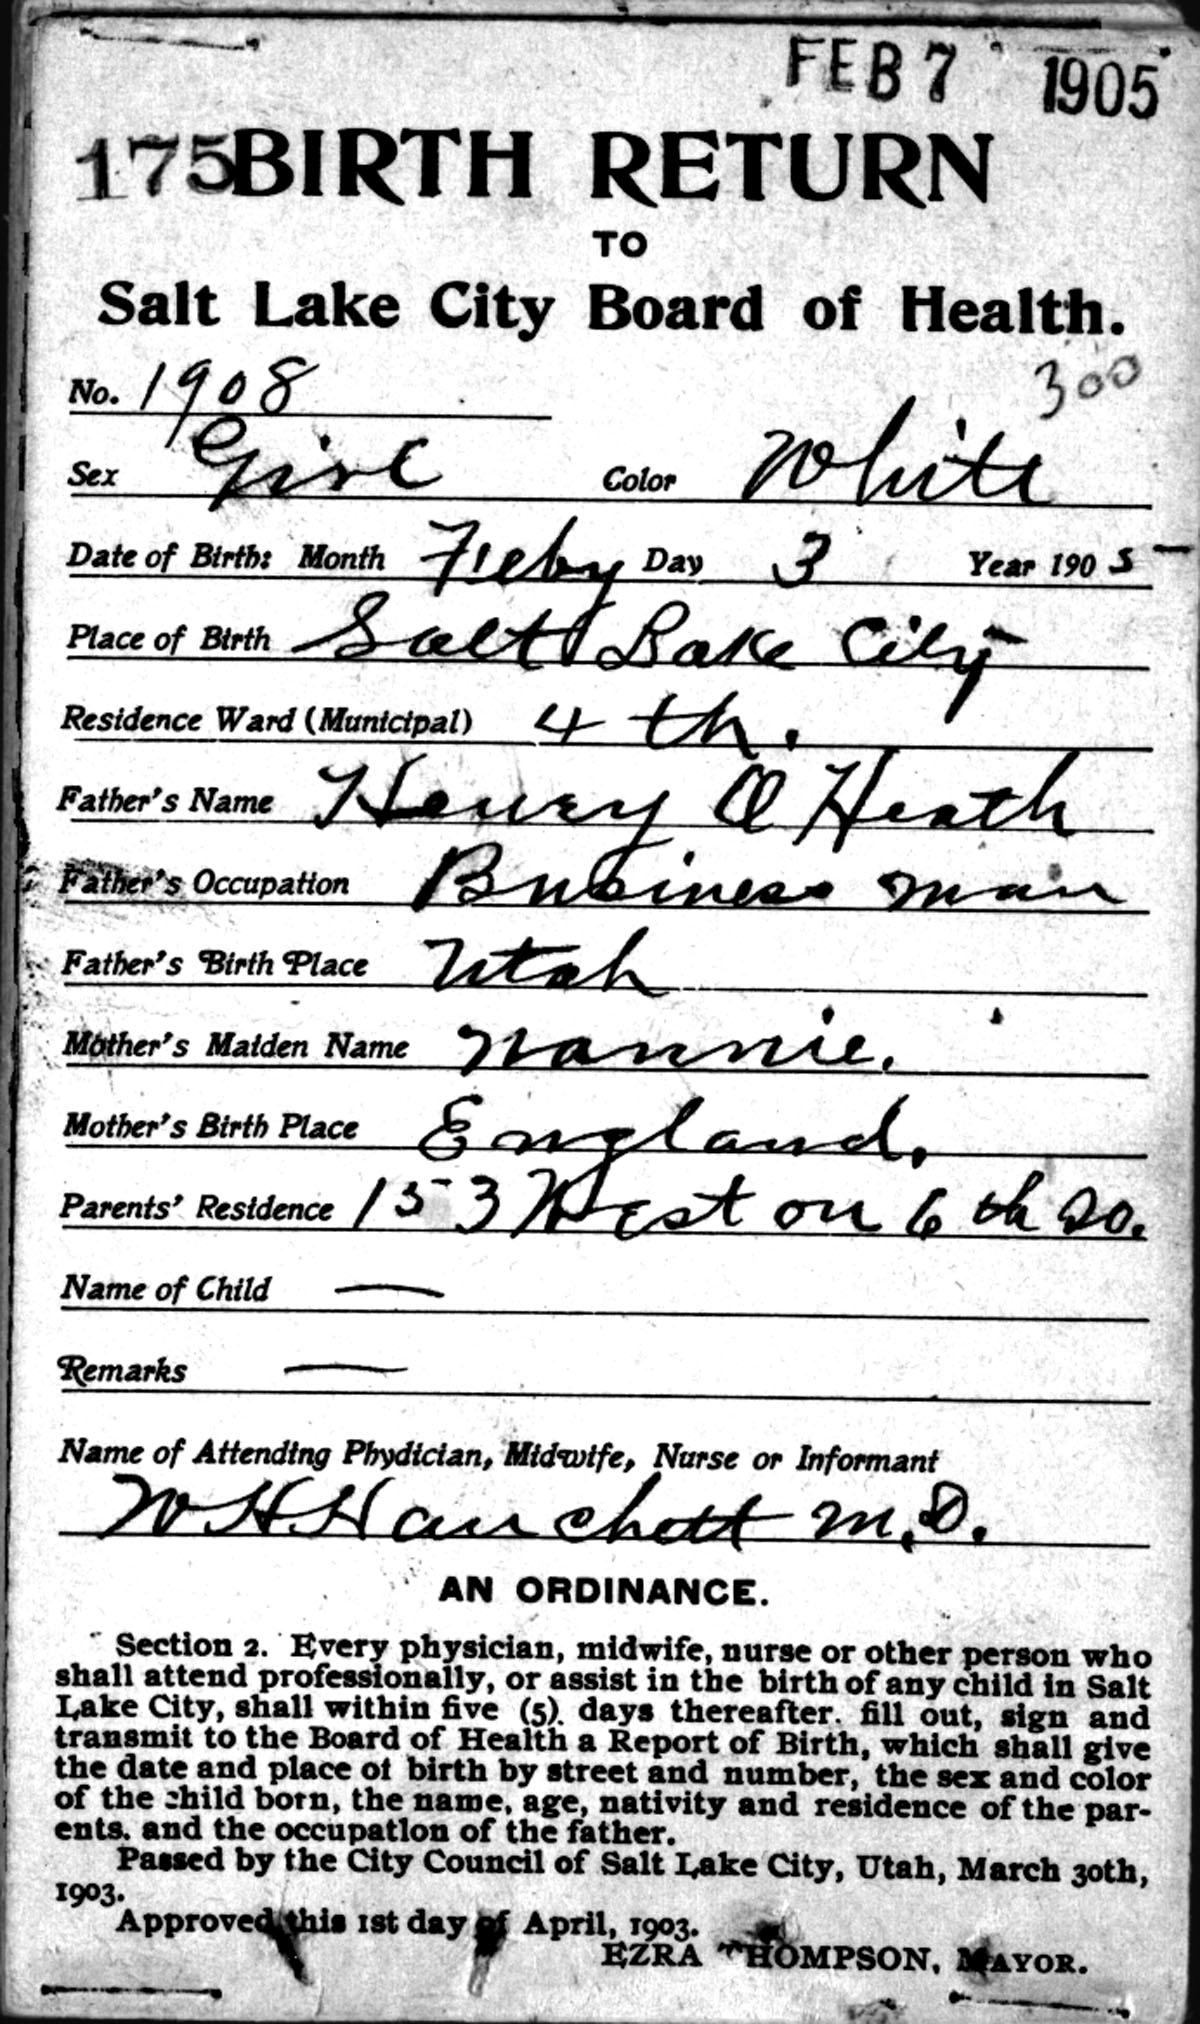 FEB 7 1905
175 BIRTH RETURN
TO
Salt Lake City Board of Health.
300
No. 1908
Sex Girl Color White
Date of Birth: Month Feby Day 3 Year 1905
Place of Birth Salt Lake City
Residence Ward (Municipal) 4th.
Father's Name Henry O Heath
Father's Occupation Business man
Father's Birth Place Utah
Mother's Maiden Name Nannie.
Mother's Birth Place England.
Parents' Residence 153 West on 6th So.
Name of Child —
Remarks —
Name of Attending Phydician, Midwife, Nurse or Informant
W H Hanchett M.D.
AN ORDINANCE.
Section 2. Every physician, midwife, nurse or other person who
shall attend professionally, or assist in the birth of any child in Salt
Lake City, shall within five (5) days thereafter. fill out, sign and
transmit to the Board of Health a Report of Birth, which shall give
the date and place of birth by street and number, the sex and color
of the child born, the name, age, nativity and residence of the par-
ents. and the occupation of the father.
Passed by the City Council of Salt Lake City, Utah, March 30th,
1903.
Approved this 1st day of April, 1903.
EZRA THOMPSON, MAYOR.